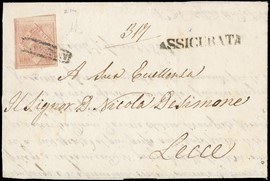 317
ASSICURATA
A Sua Eccellenza
Il Signor D. Nicola Desimone
Lecce